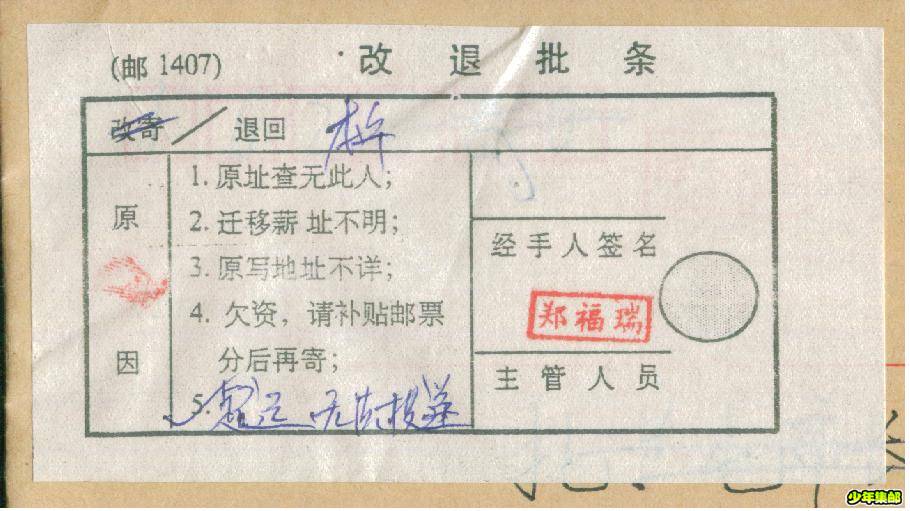 (邮 1407) 改 退 批 条
改寄 / 退回
原 因
1. 原址查无此人;
2. 迁移薪 址不明;
3. 原写地址不详;
4. 欠资, 请补贴邮票
分后再寄;
5. 无法投递
经手人签名
郑福瑞
主管人员
少年集邮